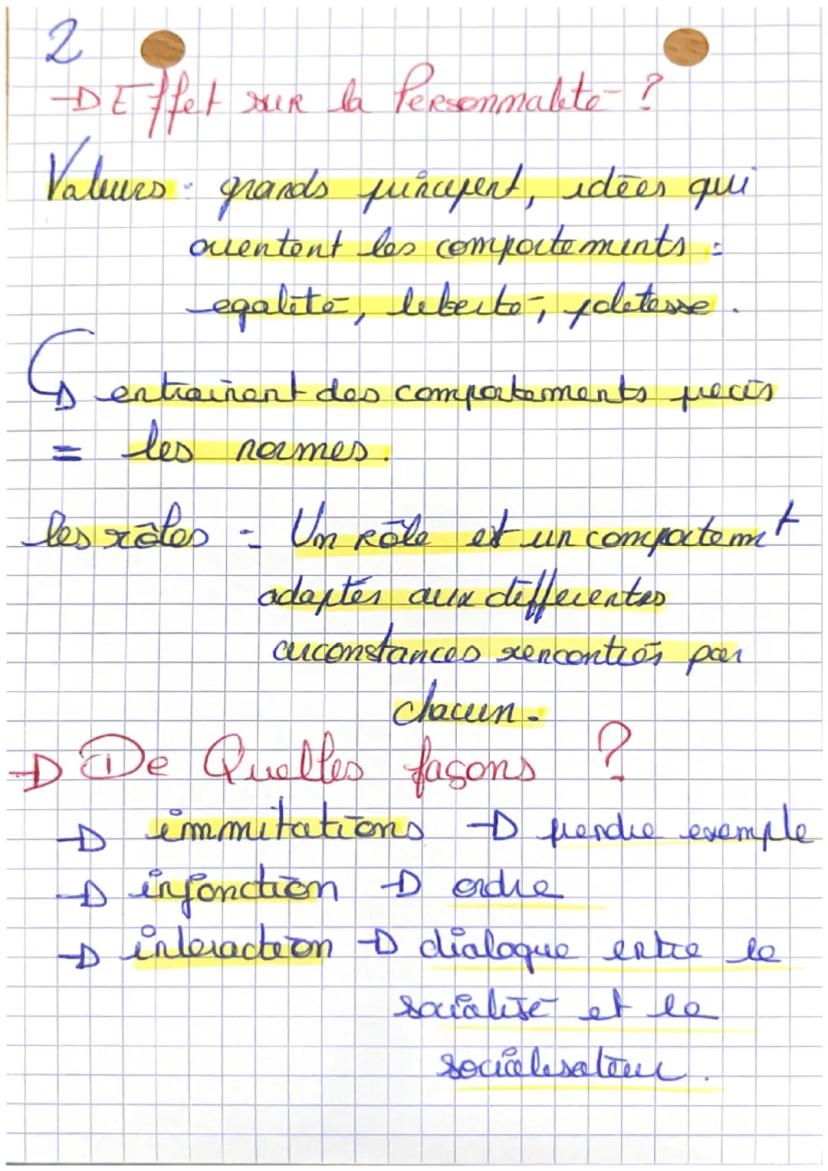 2
→ Effet sur la Personnalité ?
Valeurs : grands principent, idées qui
orientent les comportements :
egalité, liberté, politesse.
→ entrainent des comportements précis
= les normes.
les rôles = Un rôle est un comportemt
adaptés aux différentes
circonstances rencontrés par
chacun.
→ De Quelles façons ?
→ immitations → prendre exemple
→ injonction → ordre
→ interaction → dialogue entre le
socialisé et le
socialisateur.